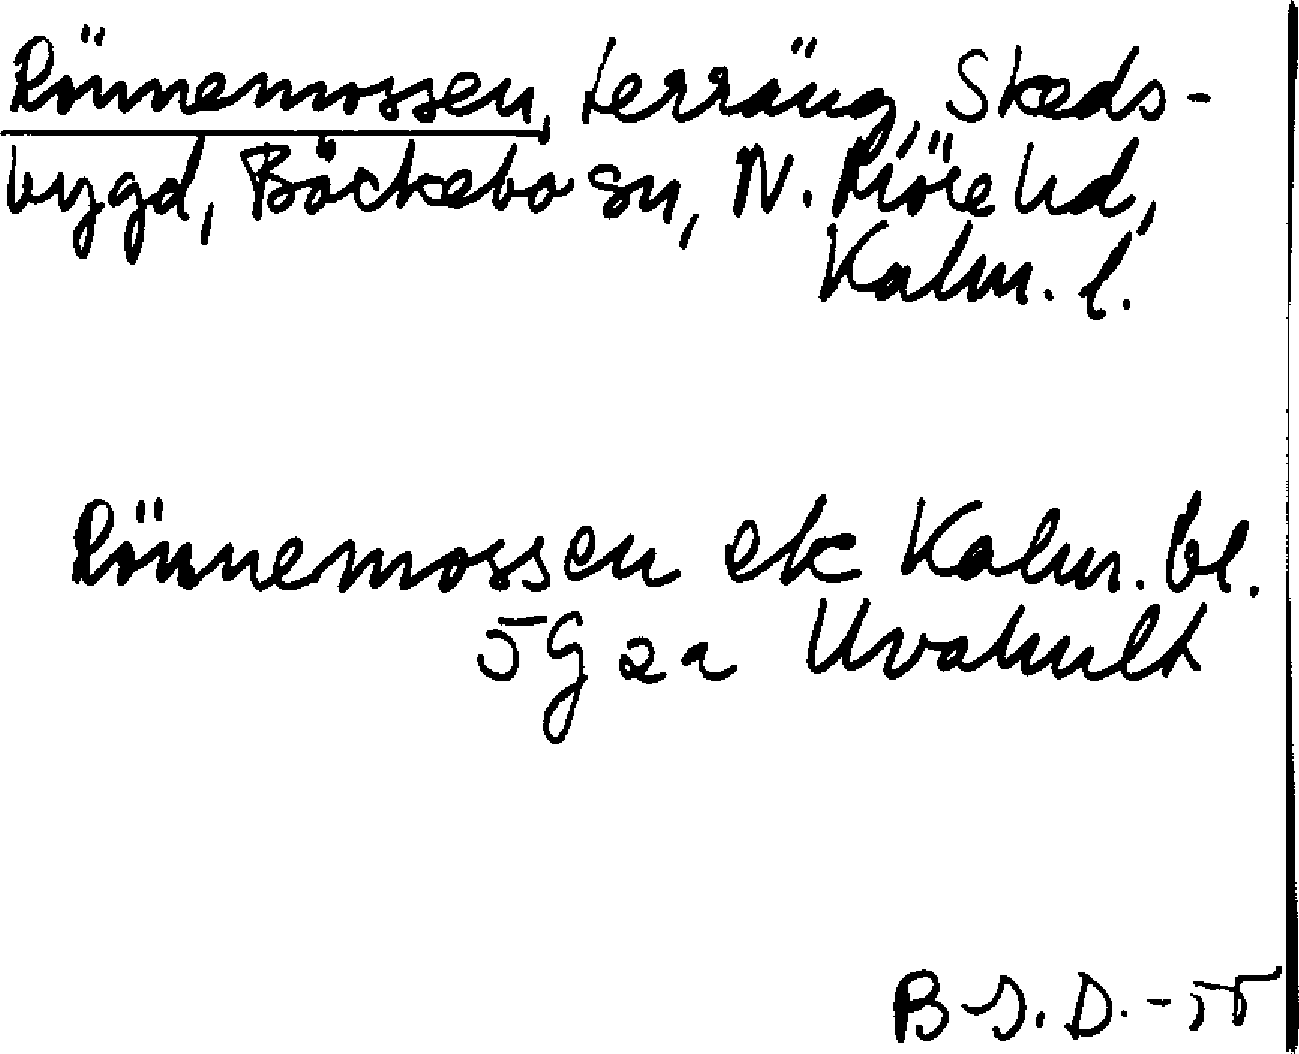 Rönnemossen, terräng, Skeds-
bygd, Bäckebo sn, N. Möre hd,
Kalm. l.
Rönnemossen ek Kalm. bl.
5G 2a Uvahult
B-J. D. -55